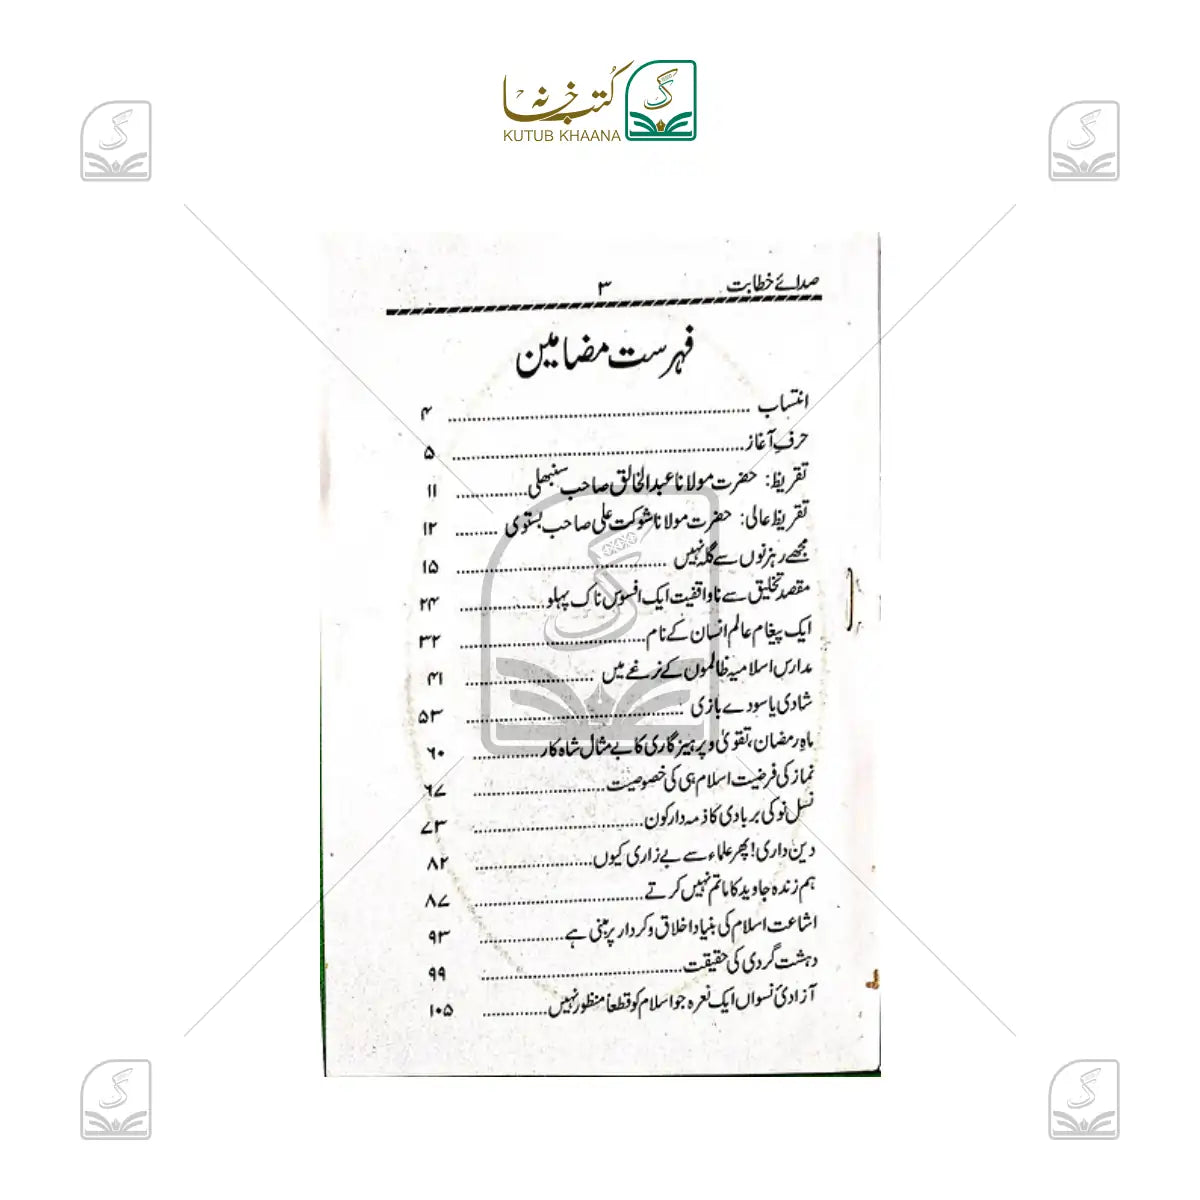 کتب خانہ
KUTUB KHAANA
صدائے خطابت ۳
فہرست مضامین
انتساب ........ ۴
حرفِ آغاز ........ ۵
تقریظ: حضرت مولانا عبدالخالق صاحب سنبھلی ........ ۱۱
تقریظ عالی: حضرت مولانا شوکت علی صاحب بستوی ........ ۱۲
مجھے رہزنوں سے گلہ نہیں ........ ۱۵
مقصد تخلیق سے ناواقفیت ایک افسوس ناک پہلو ........ ۲۴
ایک پیغام عالم انسان کے نام ........ ۳۲
مدارس اسلامیہ ظالموں کے نرغے میں ........ ۴۱
شادی یا سودے بازی ........ ۵۳
ماہِ رمضان، تقویٰ و پرہیزگاری کا بے مثال شاہ کار ........ ۶۰
نماز کی فرضیت اسلام ہی کی خصوصیت ........ ۶۷
نسل نو کی بربادی کا ذمہ دار کون ........ ۷۳
دین داری! پھر علماء سے بے زاری کیوں ........ ۸۲
ہم زندہ جاوید کا ماتم نہیں کرتے ........ ۸۷
اشاعت اسلام کی بنیاد اخلاق و کردار پر مبنی ہے ........ ۹۳
دہشت گردی کی حقیقت ........ ۹۹
آزادیٔ نسواں ایک نعرہ جو اسلام کو قطعاً منظور نہیں ........ ۱۰۵